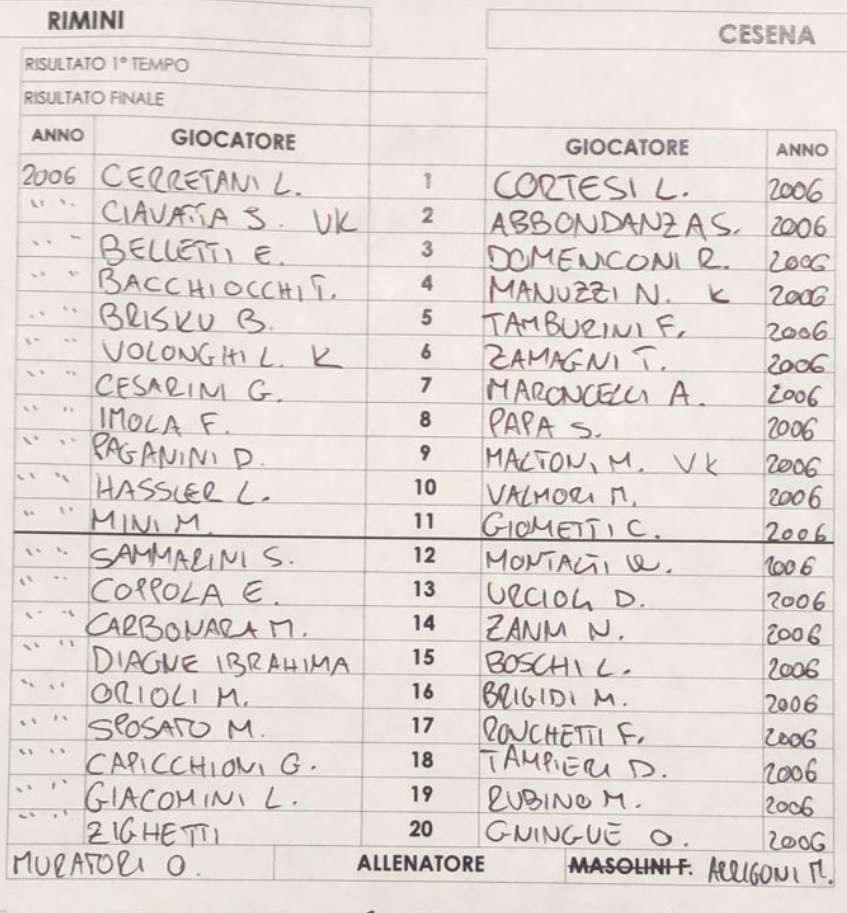 RIMINI CESENA
RISULTATO 1° TEMPO
RISULTATO FINALE
ANNO GIOCATORE GIOCATORE ANNO
2006 CERRETANI L. 1 CORTESI L. 2006
" " CIAVATTA S. VK 2 ABBONDANZA S. 2006
" " BELLETTI E. 3 DOMENICONI R. 2006
" " BACCHIOCCHI T. 4 MANUZZI N. K 2006
" " BRISKU B. 5 TAMBURINI F. 2006
" " VOLONGHI L. K 6 ZAMAGNI T. 2006
" " CESARINI G. 7 MARONCELLI A. 2006
" " IMOLA F. 8 PAPA S. 2006
" " PAGANINI D. 9 MALTONI M. VK 2006
" " HASSLER L. 10 VALMORI M. 2006
" " MINI M. 11 GIOMETTI C. 2006
" " SAMMARINI S. 12 MONTALTI 2006
" " COPPOLA E. 13 URCIOLI D. 2006
" " CARBONARA M. 14 ZANNI N. 2006
" " DIAGNE IBRAHIMA 15 BOSCHI L. 2006
" " ORIOLI M. 16 BRIGIDI M. 2006
" " SPOSATO M. 17 RONCHETTI F. 2006
" " CAPICCHIONI G. 18 TAMPIERI D. 2006
" " GIACOMINI L. 19 RUBINO M. 2006
" " ZIGHETTI 20 GNINGUE O. 2006
MURATORI O. ALLENATORE MASOLINI F. ARRIGONI M.